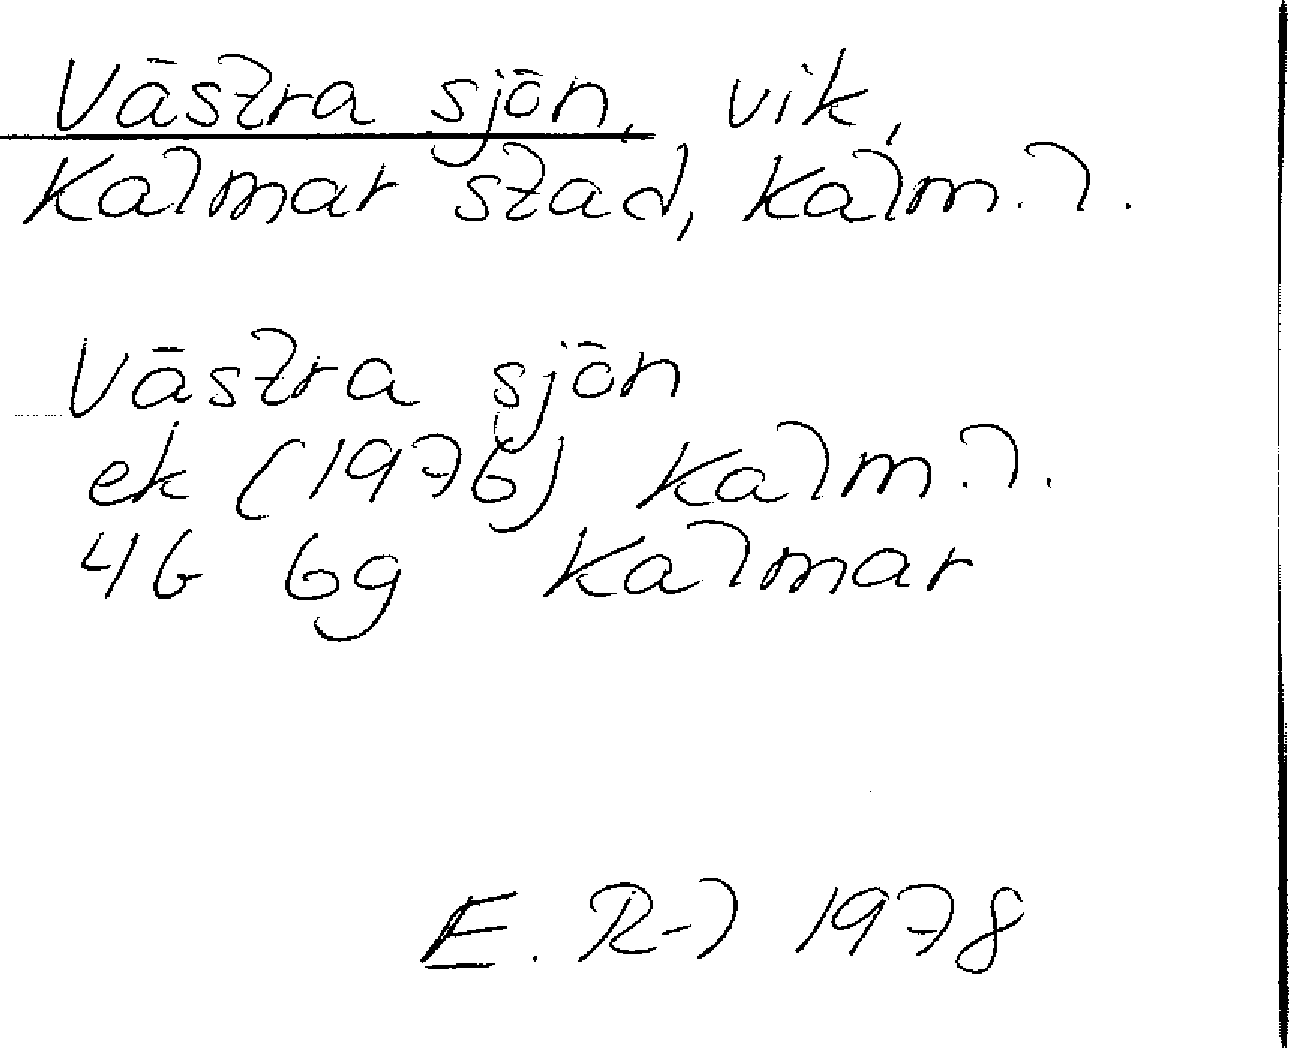 Västra sjön, vik,
Kalmar stad, Kalm. l.
Västra sjön
ek (1976) Kalm. l.
4G 6g Kalmar
E. R-l 1978